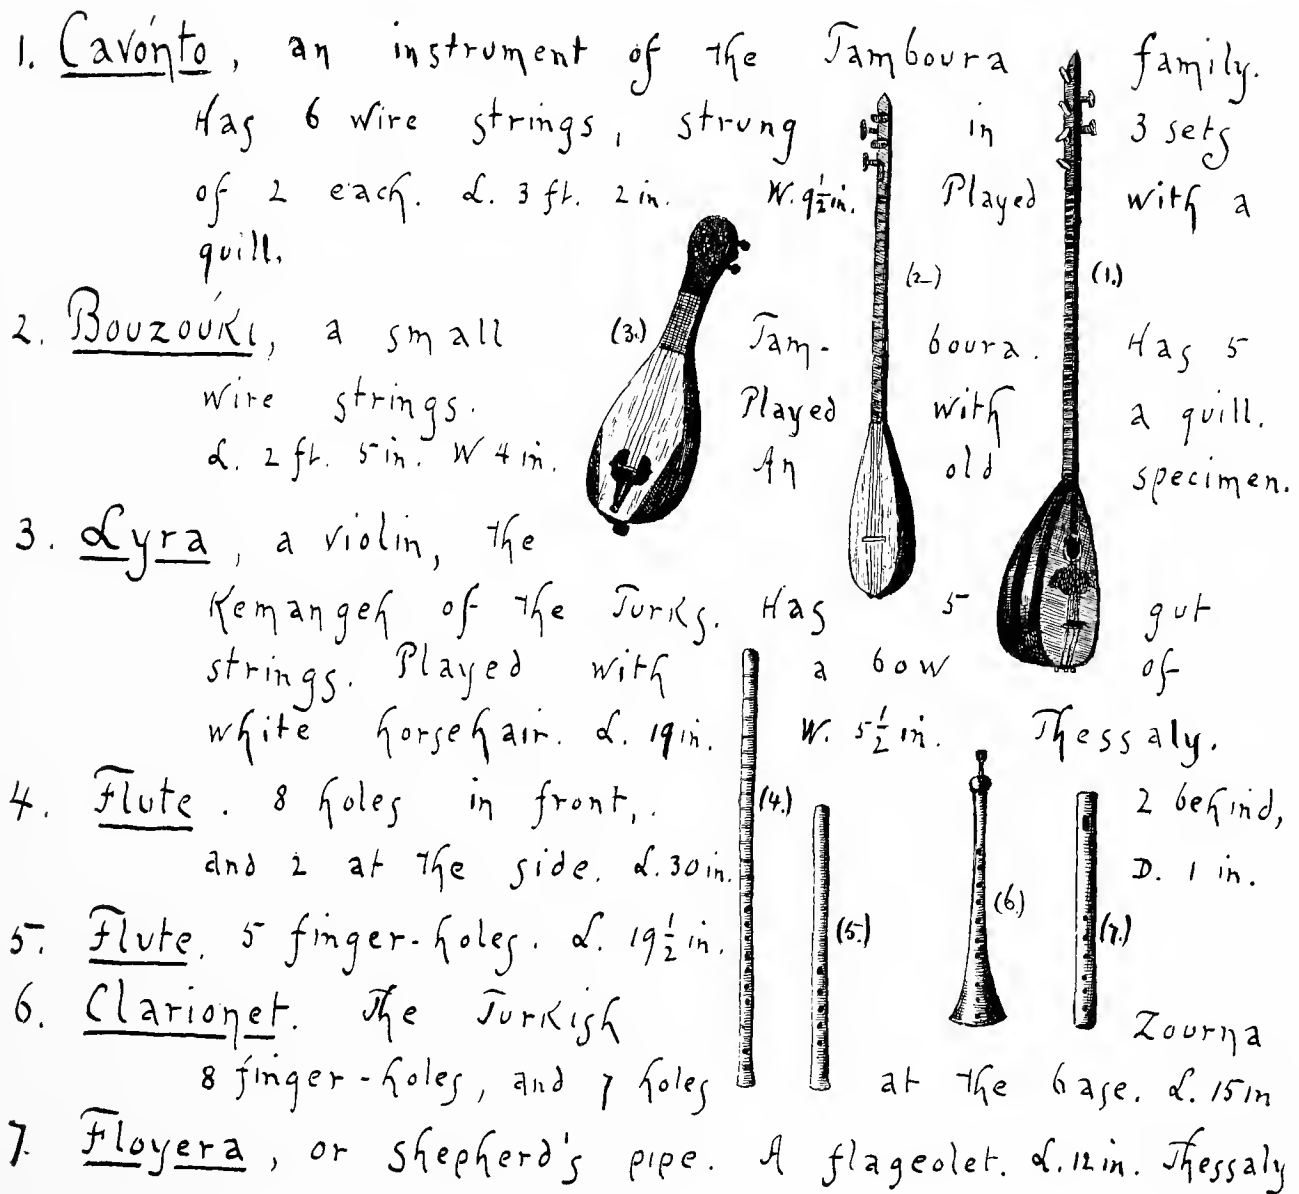 1. Cavónto, an instrument of the Tamboura family.
Has 6 wire strings, strung in 3 sets
of 2 each. L. 3 ft. 2 in. W. 9½ in. Played with a
quill.
(2)
(1.)
2. Bouzoúki, a small (3.) Tam- boura. Has 5
wire strings. Played with a quill.
L. 2 ft. 5 in. W 4 in. An old specimen.
3. Lyra, a violin, the
Kemangeh of the Turks. Has 5 gut
strings. Played with a bow of
white horsehair. L. 19 in. W. 5½ in. Thessaly.
4. Flute. 8 holes in front, (4.) 2 behind,
and 2 at the side. L. 30 in. D. 1 in.
(6.)
5. Flute. 5 finger-holes. L. 19½ in. (5.) (7.)
6. Clarionet. The Turkish Zourna
8 finger-holes, and 7 holes at the base. L. 15 in
7. Floyera, or shepherd's pipe. A flageolet. L. 12 in. Thessaly